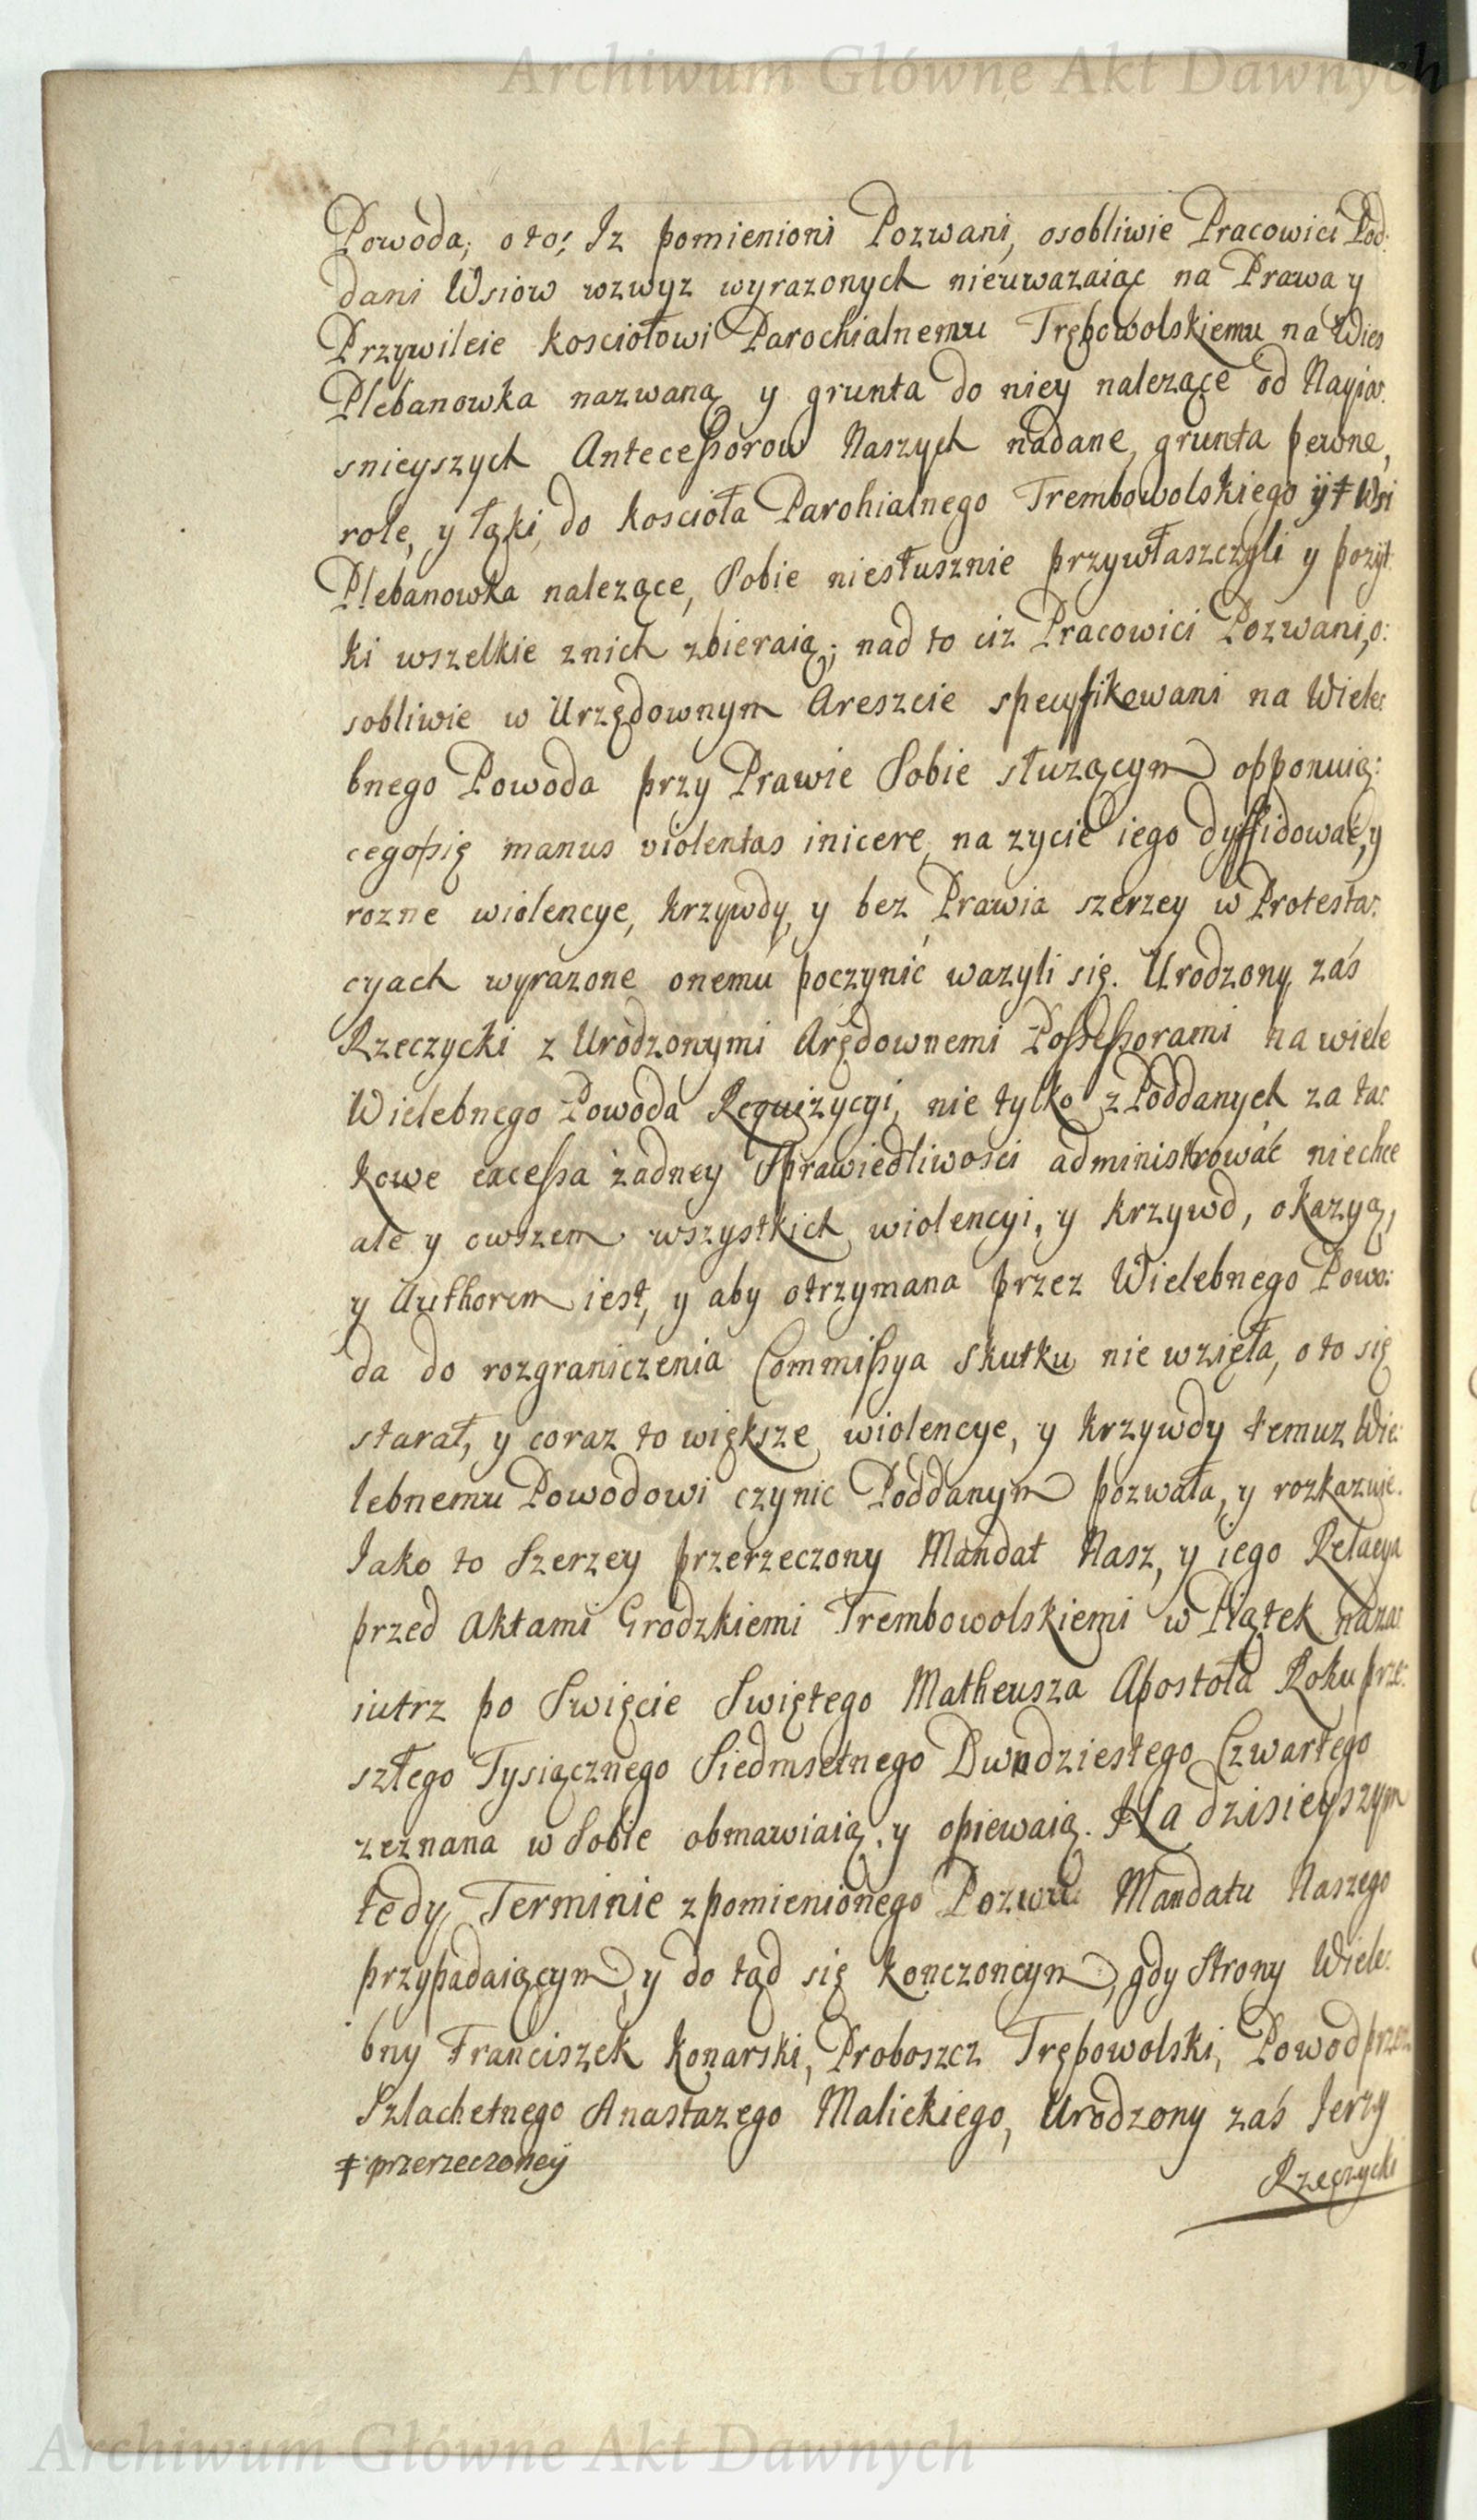 Archiwum Główne Akt Dawnych
Powoda, oto: Iz pomienioni Pozwani, osobliwie Pracowici Pod:
dani Wsiow wzwyz wyrazonych nieuwazaiąc na Prawa y
Przywileie kosciołowi Parochialnemu Trębowolskiemu na Wies
Plebanowka nazwaną y grunta do niey nalezące od Nayia:
snieyszych Antecessorow Naszych nadane, grunta pewne,
role, y łąki, do koscioła Parohialnego Trembowolskiego y ǂ Wsi
Plebanowka nalezące, Sobie niesłusznie przywłaszczyli y pozyt:
ki wszelkie znich zbieraią; nad to ciz Pracowici Pozwani, o:
sobliwie w Urzędownym Areszcie specyfikowani na Wiele:
bnego Powoda przy Prawie Sobie słuzącym opponuią:
cegosię manus violentas inicere, na zycie iego dyffidować, y
rozne wiolencye, krzywdy, y bez Prawia szerzey w Protesta:
cyach wyrazone onemu poczynić wazyli się. Urodzony zaś
Rzeczycki z Urodzonymi Arędownemi Possessorami na wiele
Wielebnego Powoda Requizycyi, nie tylko z Poddanych za ta:
kowe excessa żadney Sprawiedliwosci administrować niechce
ale y owszem wszystkich wiolencyi, y krzywd, okazyą,
y Authorem iest, y aby otrzymana przez Wielebnego Powo:
da do rozgraniczenia Commissya Skutku nie wzięła, o to się
starał, y coraz to większe wiolencye, y krzywdy temuz Wie:
lebnemu Powodowi czynic Poddanym pozwala, y rozkazuie.
Iako to Szerzey przerzeczony Mandat Nasz, y iego Relacya
przed Aktami Grodzkiemi Trembowolskiemi w Piątek naza:
iutrz po Swięcie Swiętego Matheusza Apostoła Roku prze:
szłego Tysiącznego Siedmsetnego Dwudziestego Czwartego
zeznana w Sobie obmawiaią, y opiewaią. Na dzisieyszym
tedy Terminie zpomienionego Pozwu Mandatu Naszego
przypadaiącym, y do tąd się konczoncym, gdy Strony Wiele:
bny Franciszek Konarski, Proboszcz Trębowolski, Powod przez
Szlachetnego Anastazego Malickiego, Urodzony zaś Jerzy
ǂ przerzeczoney
Rzeczycki
Archiwum Główne Akt Dawnych